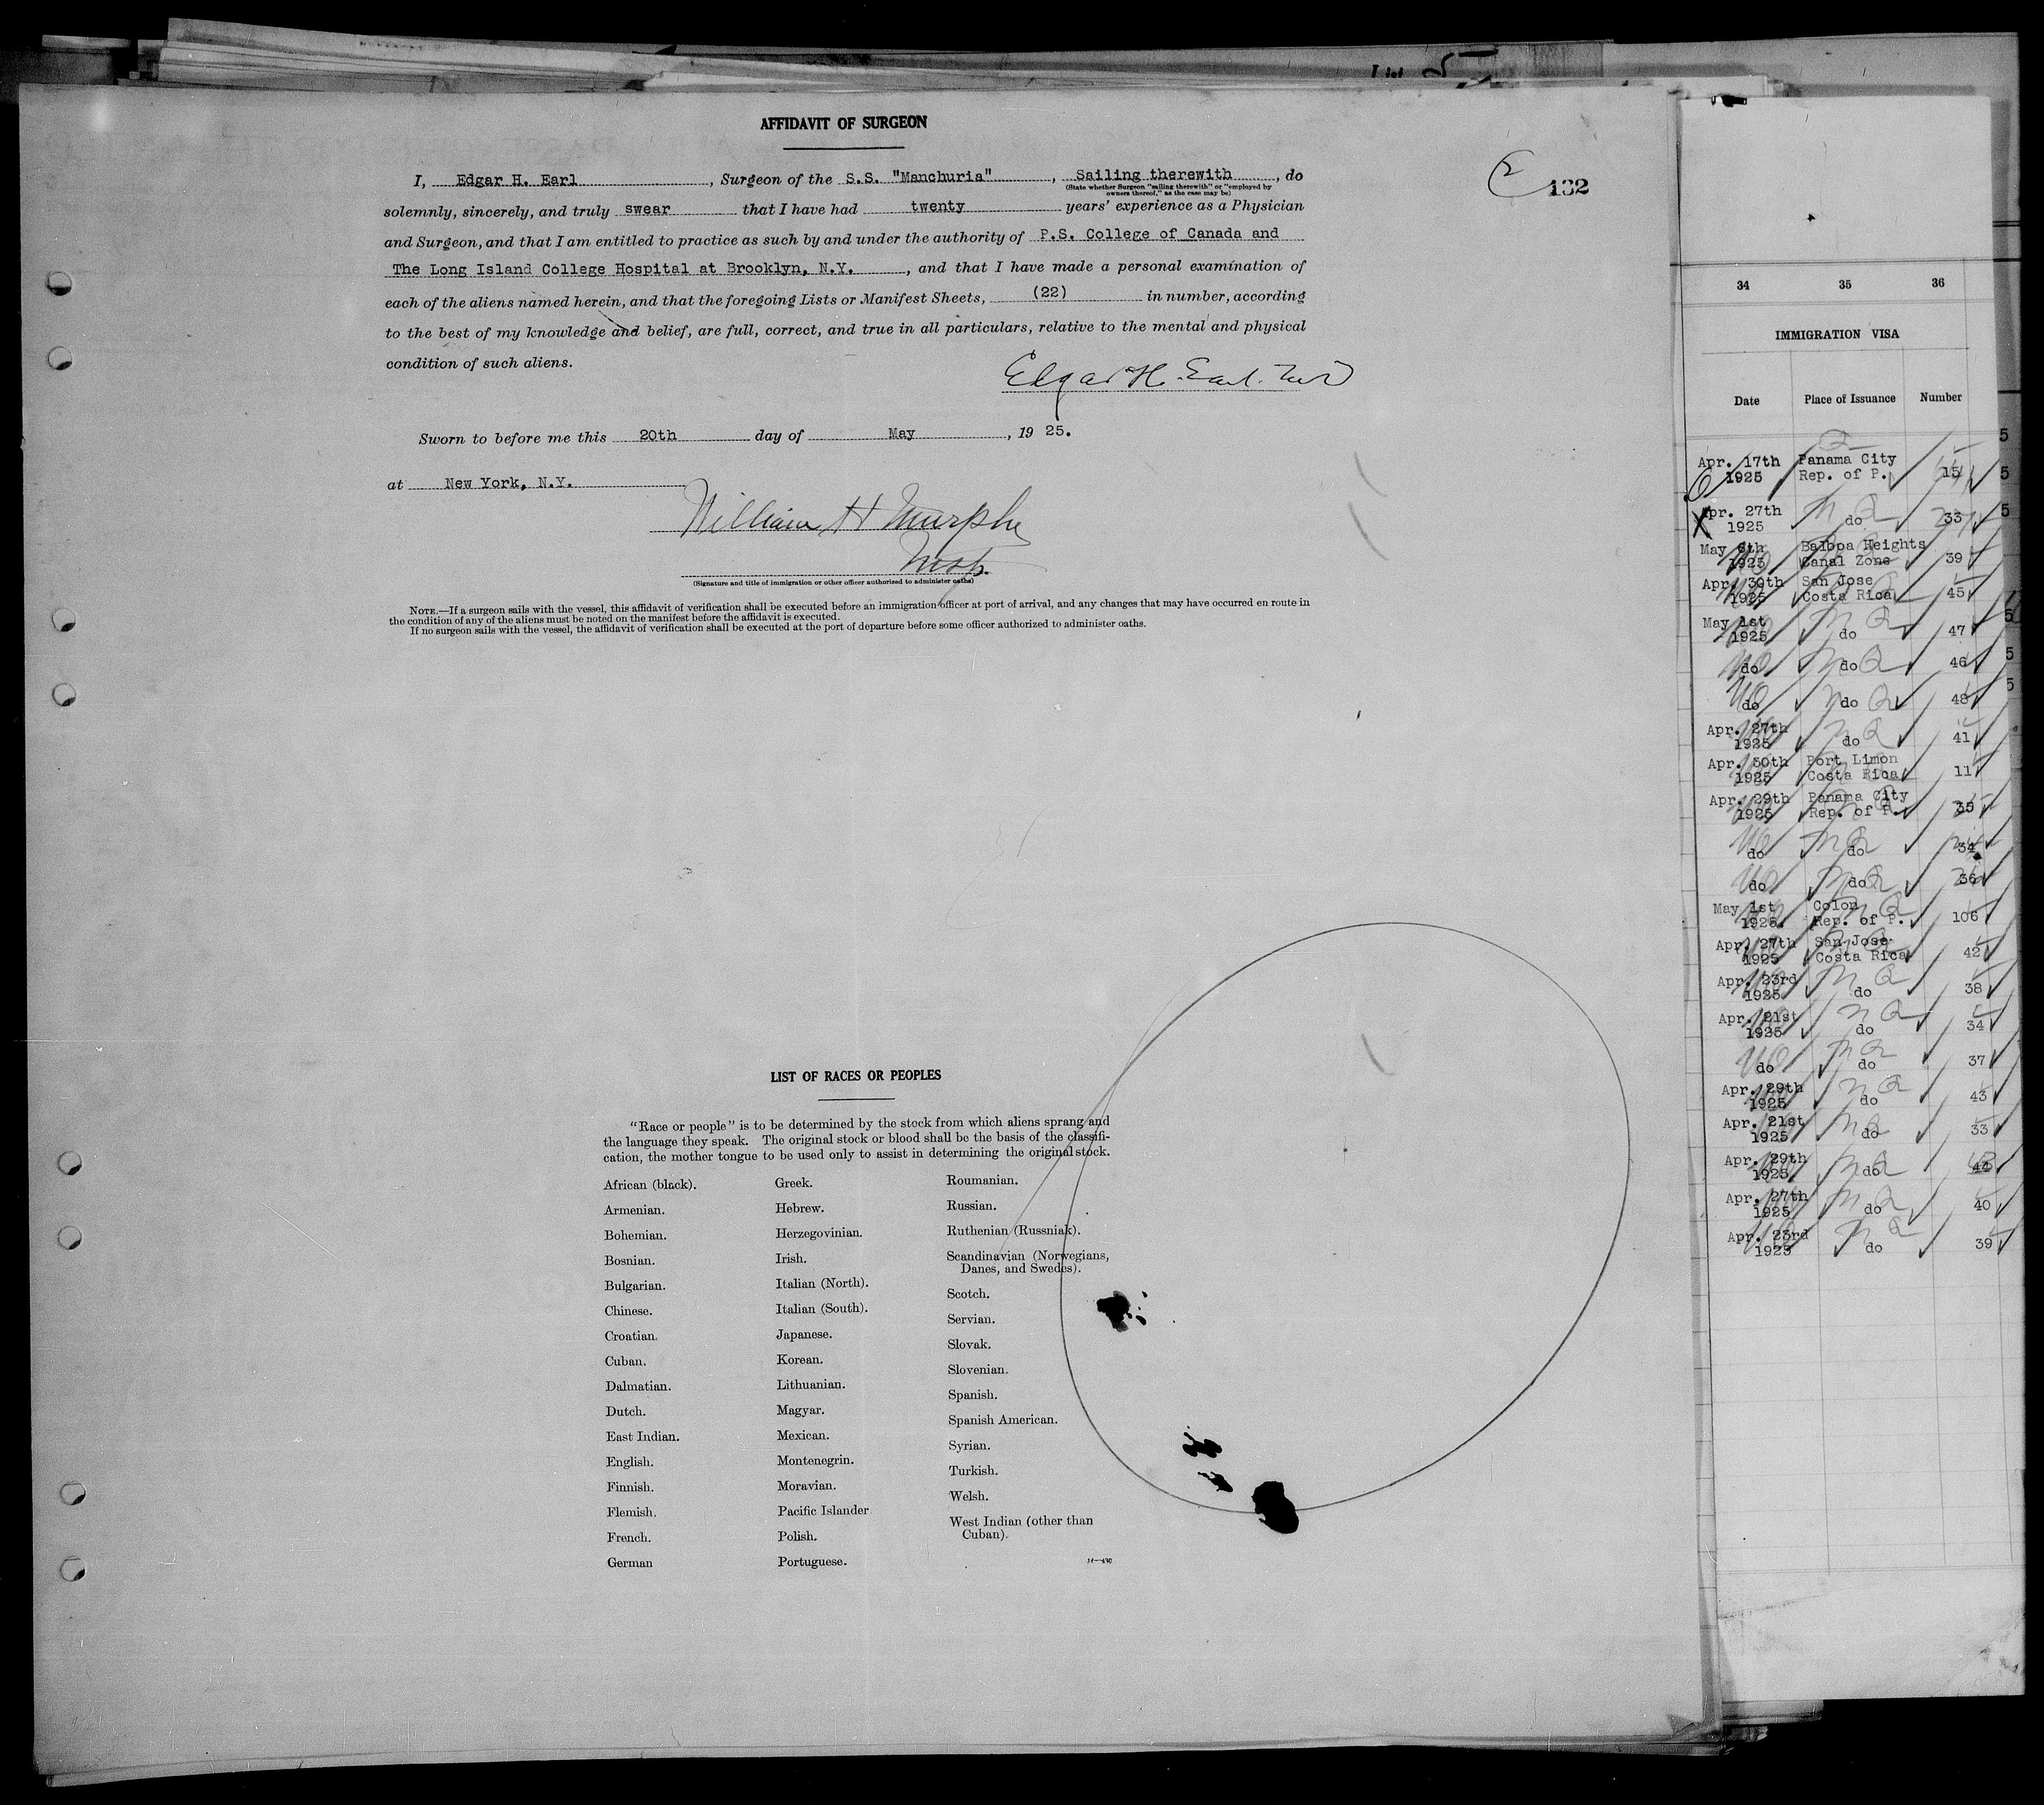 AFFIDAVIT OF SURGEON
I, Edgar H. Earl, Surgeon of the S.S. "Manchuria", Sailing therewith, do
(State whether Surgeon "sailing therewith" or "employed by
owners thereof," as the case may be)
solemnly, sincerely, and truly swear that I have had twenty years' experience as a Physician
and Surgeon, and that I am entitled to practice as such by and under the authority of P.S. College of Canada and
The Long Island College Hospital at Brooklyn, N.Y., and that I have made a personal examination of
each of the aliens named herein, and that the foregoing Lists or Manifest Sheets, (22) in number, according
to the best of my knowledge and belief, are full, correct, and true in all particulars, relative to the mental and physical
condition of such aliens.
Edgar H. Earl
Sworn to before me this 20th day of May, 1925.
at New York, N.Y.
William H Murphy
Insp.
(Signature and title of immigration or other officer authorized to administer oaths)
NOTE.—If a surgeon sails with the vessel, this affidavit of verification shall be executed before an immigration officer at port of arrival, and any changes that may have occurred en route in
the condition of any of the aliens must be noted on the manifest before the affidavit is executed.
If no surgeon sails with the vessel, the affidavit of verification shall be executed at the port of departure before some officer authorized to administer oaths.
2
132
LIST OF RACES OR PEOPLES
"Race or people" is to be determined by the stock from which aliens sprang and
the language they speak. The original stock or blood shall be the basis of the classifi-
cation, the mother tongue to be used only to assist in determining the original stock.
African (black).
Armenian.
Bohemian.
Bosnian.
Bulgarian.
Chinese.
Croatian.
Cuban.
Dalmatian.
Dutch.
East Indian.
English.
Finnish.
Flemish.
French.
German
Greek.
Hebrew.
Herzegovinian.
Irish.
Italian (North).
Italian (South).
Japanese.
Korean.
Lithuanian.
Magyar.
Mexican.
Montenegrin.
Moravian.
Pacific Islander
Polish.
Portuguese.
Roumanian.
Russian.
Ruthenian (Russniak).
Scandinavian (Norwegians,
Danes, and Swedes).
Scotch.
Servian.
Slovak.
Slovenian.
Spanish.
Spanish American.
Syrian.
Turkish.
Welsh.
West Indian (other than
Cuban).
34 35 36
IMMIGRATION VISA
Date Place of Issuance Number
Apr. 17th Panama City
1925 Rep. of P. 15
Apr. 27th
1925 do 33
May 6th Balboa Heights
1925 Canal Zone 39
Apr. 30th San Jose
1925 Costa Rica 45
May 1st
1925 do 47
do do 46
do do 48
Apr. 27th
1925 do 41
Apr. 30th Port Limon
1925 Costa Rica 11
Apr. 29th Panama City
1925 Rep. of P. 35
do do 34
do do 36
May 1st Colon
1925 Rep. of P. 106
Apr. 27th San Jose
1925 Costa Rica 42
Apr. 23rd
1925 do 38
Apr. 21st
1925 do 34
do do 37
Apr. 29th
1925 do 43
Apr. 21st
1925 do 33
Apr. 29th
1925 do 44
Apr. 27th
1925 do 40
Apr. 23rd
1925 do 39